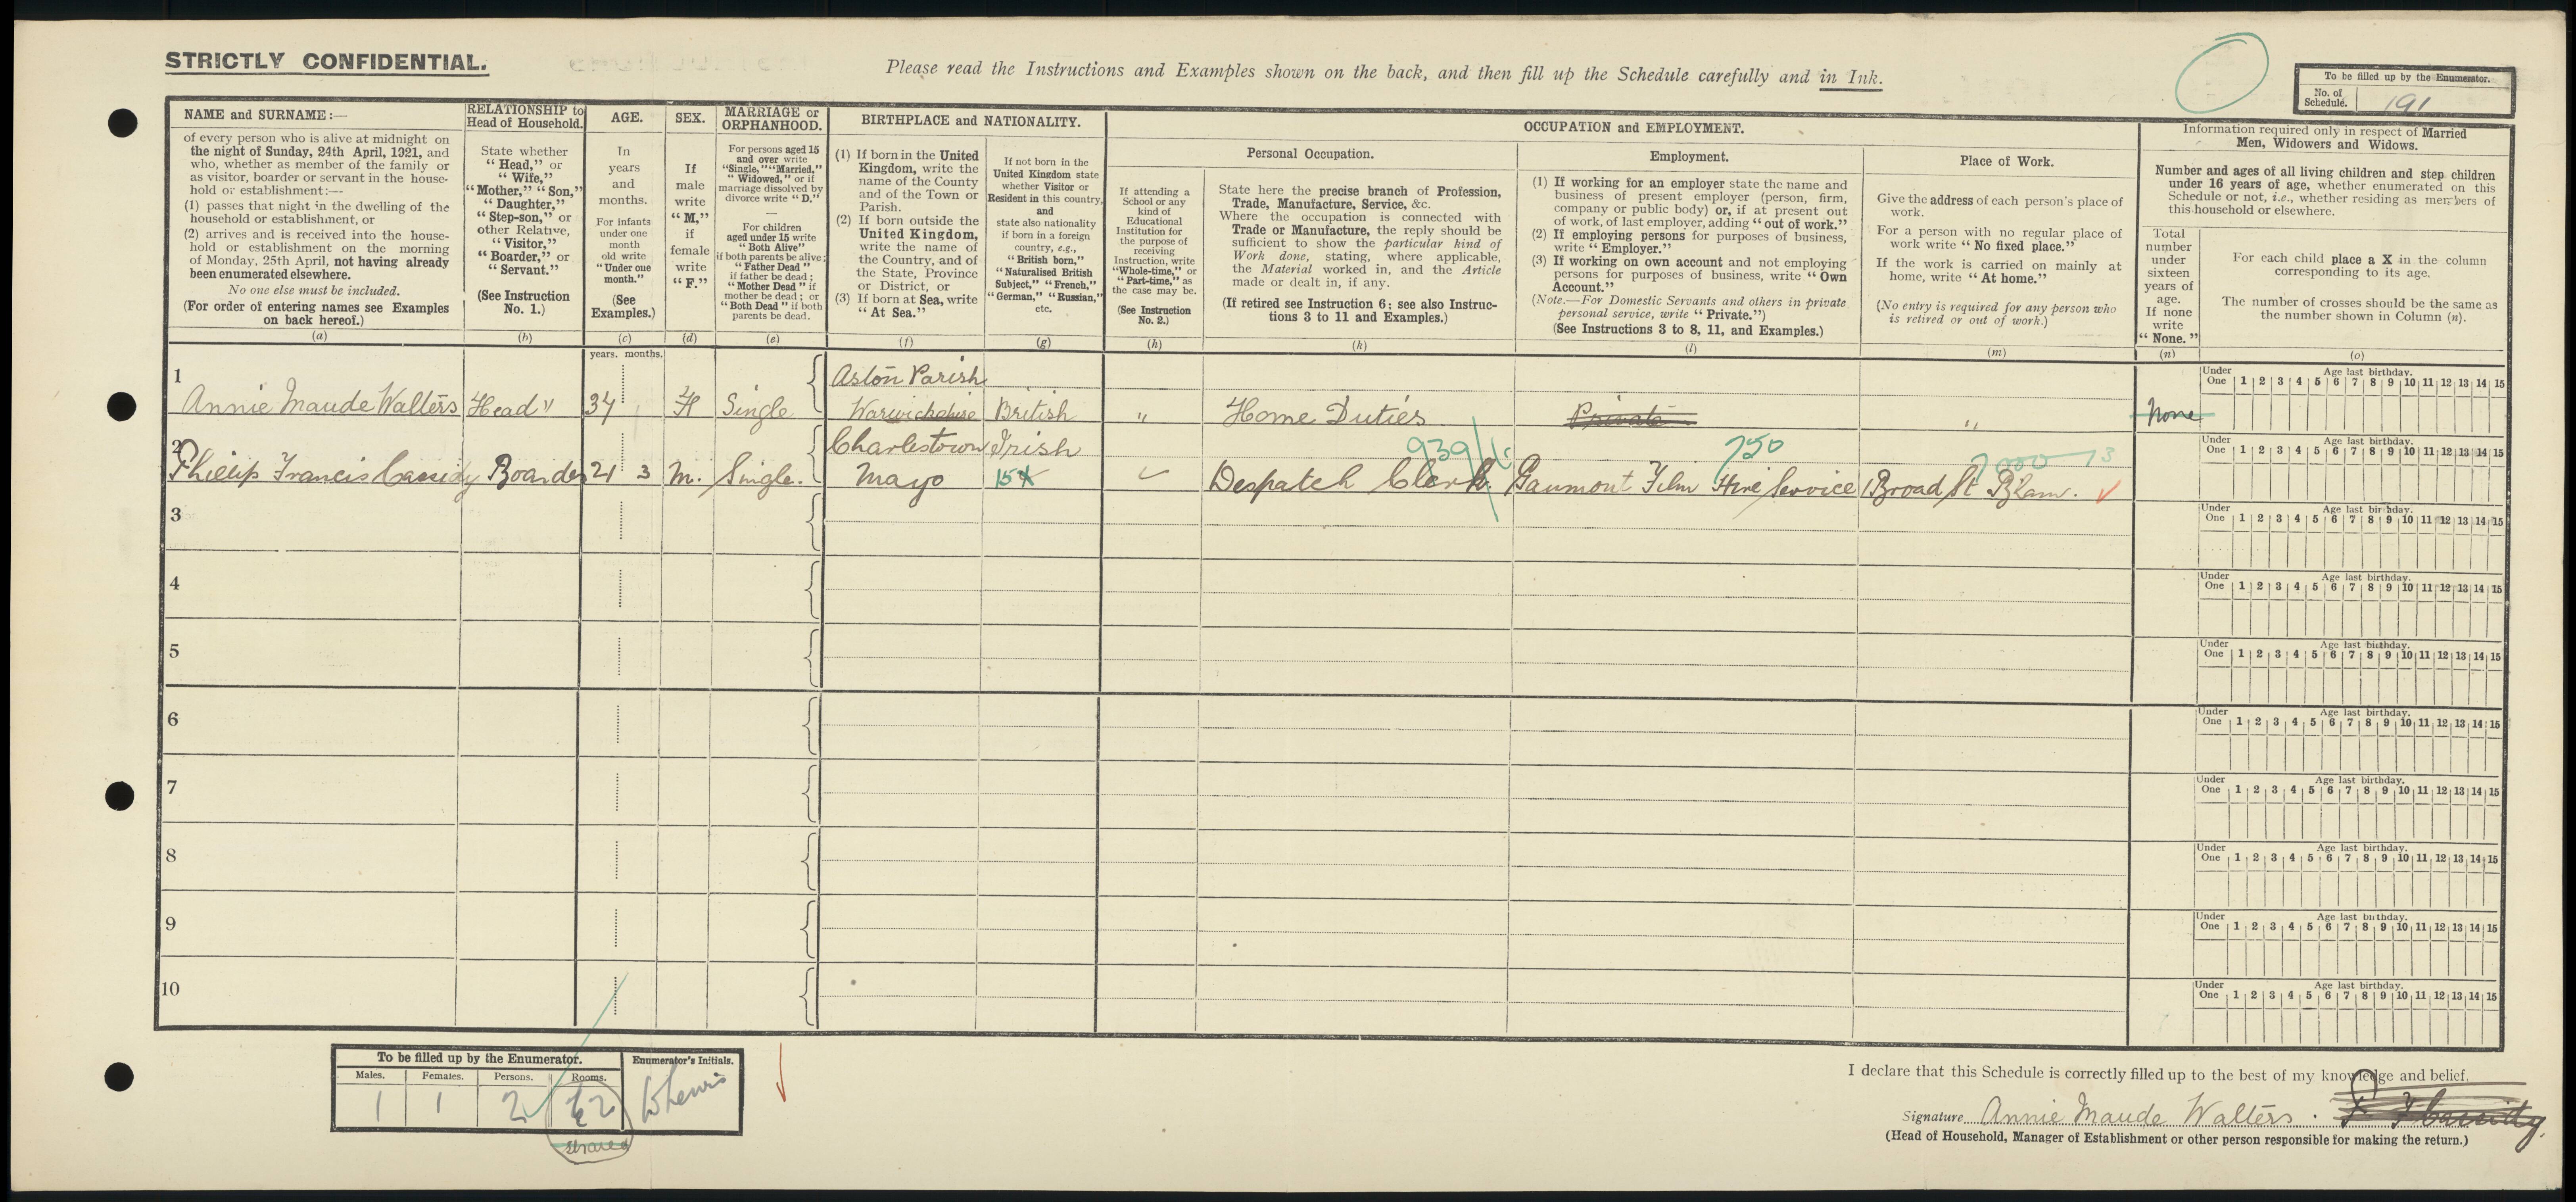 STRICTLY CONFIDENTIAL.
Please read the Instructions and Examples shown on the back, and then fill up the Schedule carefully and in Ink.
To be filled up by the Enumerator.
No. of Schedule. 191
NAME and SURNAME:—
of every person who is alive at midnight on
the night of Sunday, 24th April, 1921, and
who, whether as member of the family or
as visitor, boarder or servant in the house-
hold or establishment:—
(1) passes that night in the dwelling of the
household or establishment, or
(2) arrives and is received into the house-
hold or establishment on the morning
of Monday, 25th April, not having already
been enumerated elsewhere.
No one else must be included.
(For order of entering names see Examples
on back hereof.)
(a)
RELATIONSHIP to
Head of Household.
State whether
"Head," or
"Wife,"
"Mother," "Son,"
"Daughter,"
"Step-son," or
other Relative,
"Visitor,"
"Boarder," or
"Servant."
(See Instruction
No. 1.)
(b)
AGE.
In
years
and
months.
For infants
under one
month
old write
"Under one
month."
(See
Examples.)
(c)
years. months.
SEX.
If
male
write
"M,"
if
female
write
"F."
(d)
MARRIAGE or
ORPHANHOOD.
For persons aged 15
and over write
"Single," "Married,"
"Widowed," or if
marriage dissolved by
divorce write "D."
—
For children
aged under 15 write
"Both Alive"
if both parents be alive;
"Father Dead"
if father be dead;
"Mother Dead" if
mother be dead; or
"Both Dead" if both
parents be dead.
(e)
BIRTHPLACE and NATIONALITY.
(1) If born in the United
Kingdom, write the
name of the County
and of the Town or
Parish.
(2) If born outside the
United Kingdom,
write the name of
the Country, and of
the State, Province
or District, or
(3) If born at Sea, write
"At Sea."
(f)
If not born in the
United Kingdom state
whether Visitor or
Resident in this country,
and
state also nationality
if born in a foreign
country, e.g.,
"British born,"
"Naturalised British
Subject," "French,"
"German," "Russian,"
etc.
(g)
OCCUPATION and EMPLOYMENT.
If attending a
School or any
kind of
Educational
Institution for
the purpose of
receiving
Instruction, write
"Whole-time," or
"Part-time," as
the case may be.
(See Instruction
No. 2.)
(h)
Personal Occupation.
State here the precise branch of Profession,
Trade, Manufacture, Service, &c.
Where the occupation is connected with
Trade or Manufacture, the reply should be
sufficient to show the particular kind of
Work done, stating, where applicable,
the Material worked in, and the Article
made or dealt in, if any.
(If retired see Instruction 6; see also Instruc-
tions 3 to 11 and Examples.)
(k)
Employment.
(1) If working for an employer state the name and
business of present employer (person, firm,
company or public body) or, if at present out
of work, of last employer, adding "out of work."
(2) If employing persons for purposes of business,
write "Employer."
(3) If working on own account and not employing
persons for purposes of business, write "Own
Account."
(Note.—For Domestic Servants and others in private
personal service, write "Private.")
(See Instructions 3 to 8, 11, and Examples.)
(l)
Place of Work.
Give the address of each person's place of
work.
For a person with no regular place of
work write "No fixed place."
If the work is carried on mainly at
home, write "At home."
(No entry is required for any person who
is retired or out of work.)
(m)
Information required only in respect of Married
Men, Widowers and Widows.
Number and ages of all living children and step children
under 16 years of age, whether enumerated on this
Schedule or not, i.e., whether residing as members of
this household or elsewhere.
Total
number
under
sixteen
years of
age.
If none
write
"None."
(n)
For each child place a X in the column
corresponding to its age.
The number of crosses should be the same as
the number shown in Column (n).
(o)
1
Annie Maude Walters Head " 34 F Single Aston Parish Warwickshire British " Home Duties Private " None
Under One Age last birthday. 1 2 3 4 5 6 7 8 9 10 11 12 13 14 15
2
Phillip Francis Cassidy Boarder 21 3 M. Single. Charlestown Mayo Irish 15X Despatch Clerk 939 Gaumont Film Hire Service 750 Broad St B'ham.
Under One Age last birthday. 1 2 3 4 5 6 7 8 9 10 11 12 13 14 15
3
Under One Age last birthday. 1 2 3 4 5 6 7 8 9 10 11 12 13 14 15
4
Under One Age last birthday. 1 2 3 4 5 6 7 8 9 10 11 12 13 14 15
5
Under One Age last birthday. 1 2 3 4 5 6 7 8 9 10 11 12 13 14 15
6
Under One Age last birthday. 1 2 3 4 5 6 7 8 9 10 11 12 13 14 15
7
Under One Age last birthday. 1 2 3 4 5 6 7 8 9 10 11 12 13 14 15
8
Under One Age last birthday. 1 2 3 4 5 6 7 8 9 10 11 12 13 14 15
9
Under One Age last birthday. 1 2 3 4 5 6 7 8 9 10 11 12 13 14 15
10
Under One Age last birthday. 1 2 3 4 5 6 7 8 9 10 11 12 13 14 15
To be filled up by the Enumerator.
Enumerator's Initials.
Males. Females. Persons. Rooms.
1 1 2 2
shared
I declare that this Schedule is correctly filled up to the best of my knowledge and belief.
Signature Annie Maude Walters. P F Cassidy.
(Head of Household, Manager of Establishment or other person responsible for making the return.)